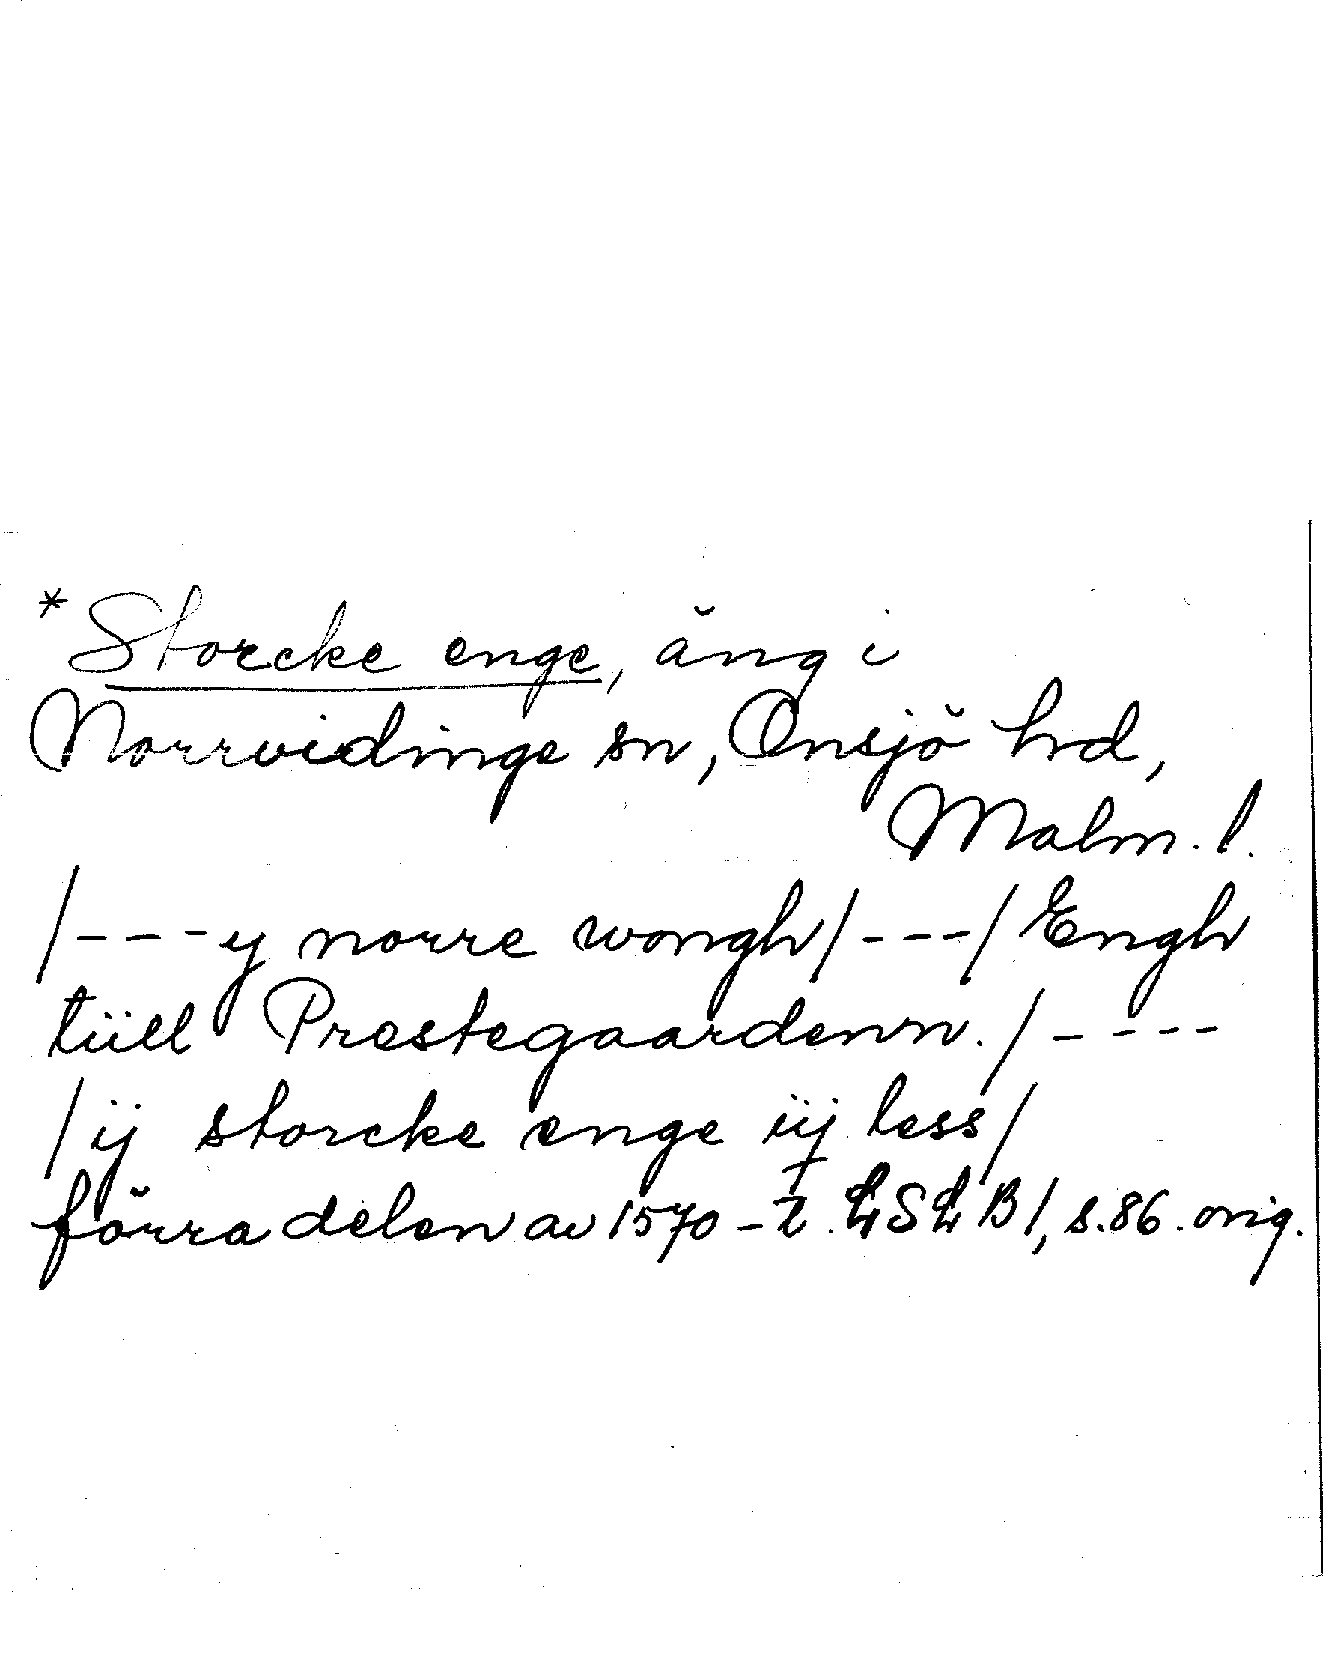 *Storcke enge, äng i
Norrvidinge sn, Onsjö hd,
Malm. l.
/---y norre wongh/---/ Engh
tiill Prestegaardenn./----
/ij storcke enge iij less/
förra delen av 1570-t. LSLB 1, s.86. orig.